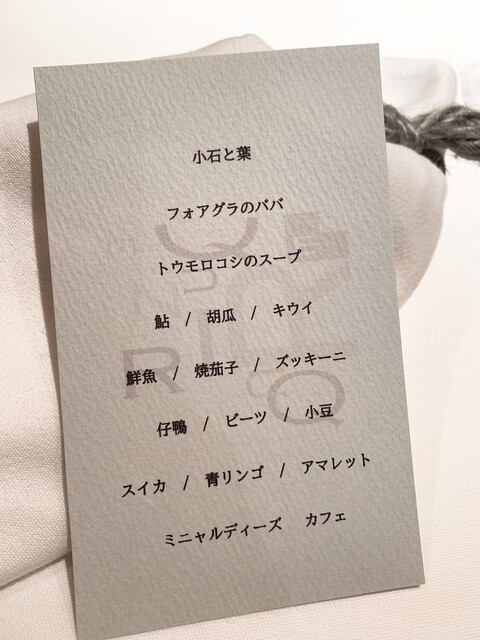 小石と葉
フォアグラのババ
トウモロコシのスープ
鮎 / 胡瓜 / キウイ
鮮魚 / 焼茄子 / ズッキーニ
仔鴨 / ビーツ / 小豆
スイカ / 青リンゴ / アマレット
ミニャルディーズ カフェ